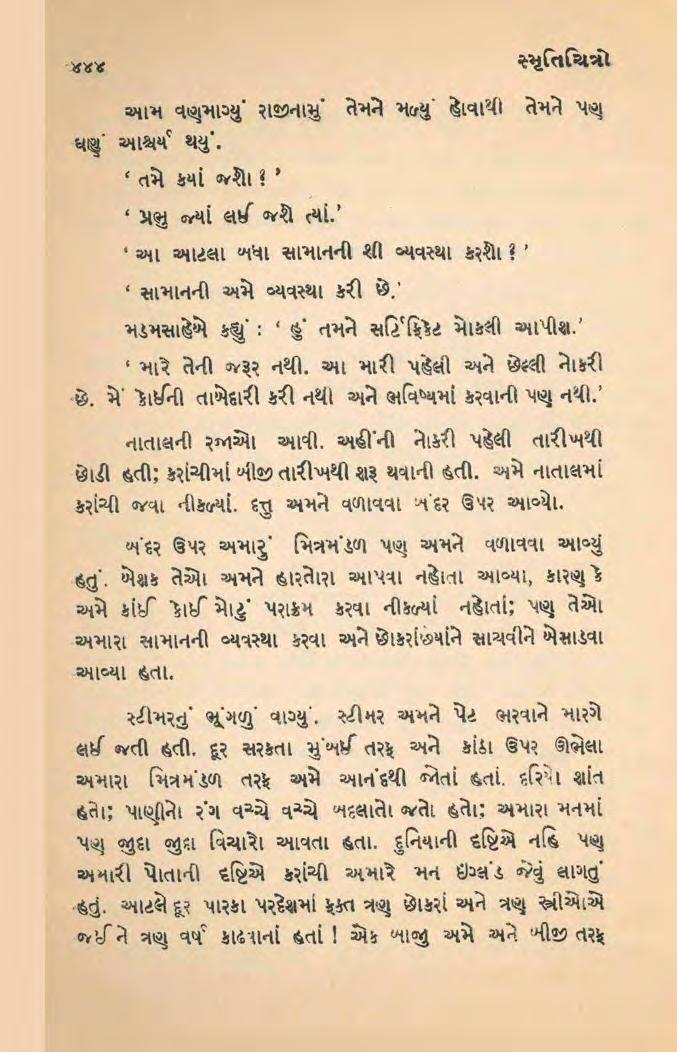 ૪૪૪
સ્મૃતિચિત્રો
આમ વણમાગ્યું રાજીનામું તેમને મળ્યું હોવાથી તેમને પણ
ઘણું આશ્ચર્ય થયું.
‘ તમે કયાં જશો ? ’
‘ પ્રભુ જ્યાં લઈ જશે ત્યાં.’
‘ આ આટલા બધા સામાનની શી વ્યવસ્થા કરશો ? ’
‘ સામાનની અમે વ્યવસ્થા કરી છે.’
મડમસાહેબે કહ્યું : ‘ હું તમને સર્ટિફિકેટ મોકલી આપીશ.’
‘ મારે તેની જરૂર નથી. આ મારી પહેલી અને છેલ્લી નોકરી
છે. મેં કોઈની તાબેદારી કરી નથી અને ભવિષ્યમાં કરવાની પણ નથી.’
નાતાલની રજાઓ આવી. અહીંની નોકરી પહેલી તારીખથી
છોડી હતી; કરાંચીમાં બીજી તારીખથી શરૂ થવાની હતી. અમે નાતાલમાં
કરાંચી જવા નીકળ્યાં. દત્તુ અમને વળાવવા બંદર ઉપર આવ્યો.
બંદર ઉપર અમારું મિત્રમંડળ પણ અમને વળાવવા આવ્યું
હતું. બેશક તેઓ અમને હારતોરા આપવા નહોતા આવ્યા, કારણ કે
અમે કાંઈ કોઈ મોટું પરાક્રમ કરવા નીકળ્યાં નહોતાં; પણ તેઓ
અમારા સામાનની વ્યવસ્થા કરવા અને છોકરાંછૈયાંને સાચવીને બેસાડવા
આવ્યા હતા.
સ્ટીમરનું ભૂંગળું વાગ્યું. સ્ટીમર અમને પેટ ભરવાને મારગે
લઈ જતી હતી. દૂર સરકતા મુંબઈ તરફ અને કાંઠા ઉપર ઊભેલા
અમારા મિત્રમંડળ તરફ અમે આનંદથી જોતાં હતાં. દરિયો શાંત
હતો; પાણીનો રંગ વચ્ચે વચ્ચે બદલાતો જતો હતો; અમારા મનમાં
પણ જુદા જુદા વિચારો આવતા હતા. દુનિયાની દૃષ્ટિએ નહિ પણ
અમારી પોતાની દૃષ્ટિએ કરાંચી અમારે મન ઇંગ્લંડ જેવું લાગતું
હતું. આટલે દૂર પારકા પરદેશમાં ફક્ત ત્રણ છોકરાં અને ત્રણ સ્ત્રીઓએ
જઈને ત્રણ વર્ષ કાઢવાનાં હતાં ! એક બાજુ અમે અને બીજી તરફ